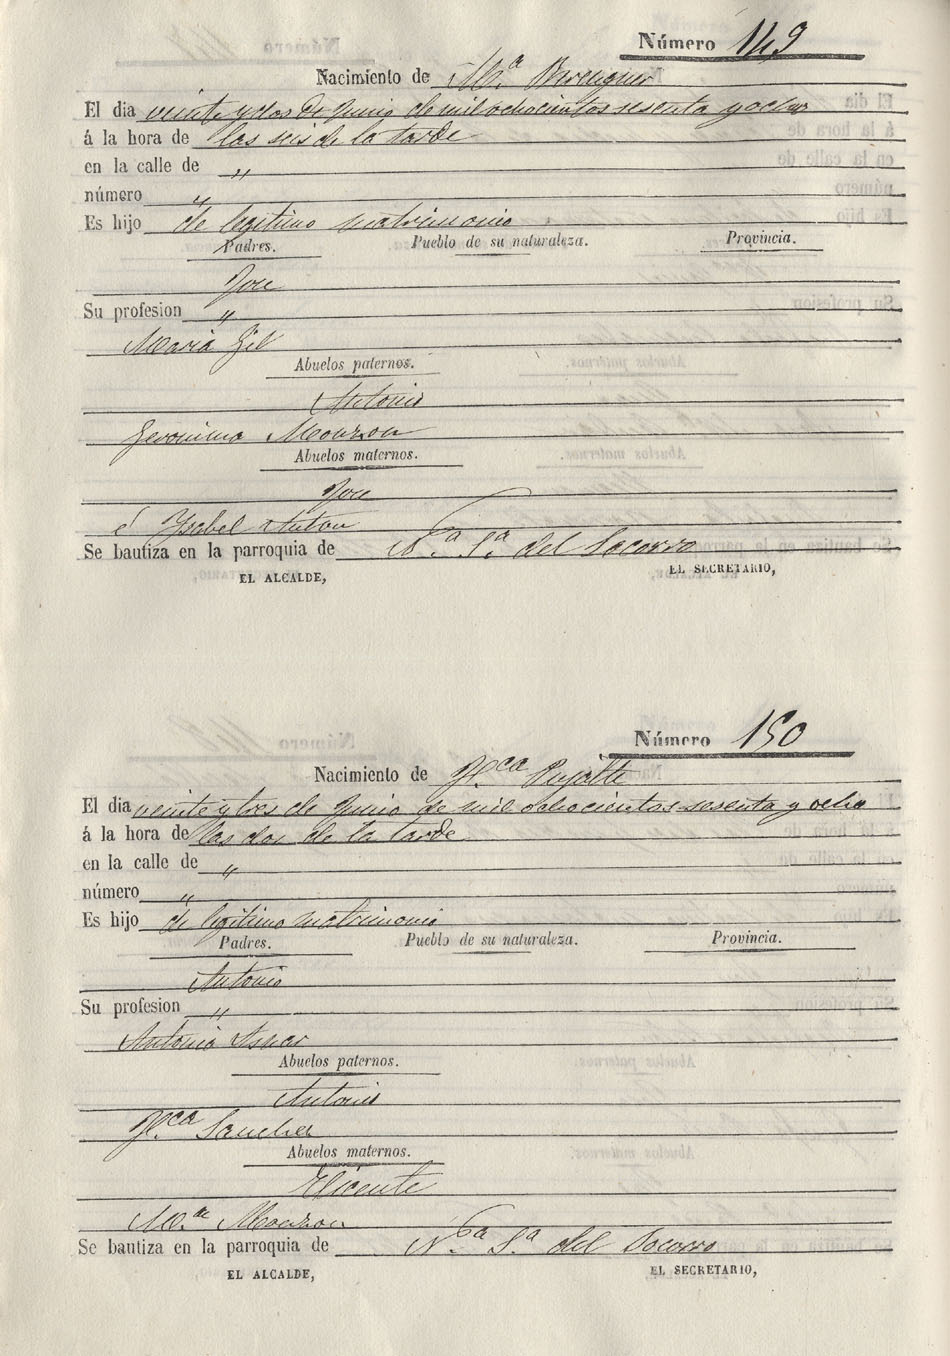 Número 149
Nacimiento de M.ª Berenguer
El dia veinte y dos de Junio de mil ochocientos sesenta y ocho
á la hora de las seis de la tarde
en la calle de "
número "
Es hijo de legitimo matrimonio
Padres. Pueblo de su naturaleza. Provincia.
Jose
Su profesion "
Maria Gil
Abuelos paternos.
Antonio
Geronima Monzon
Abuelos maternos.
Jose
é Ysabel Anton
Se bautiza en la parroquia de N.ª S.ª del Socorro
EL ALCALDE, EL SECRETARIO,
Número 150
Nacimiento de F.ca Pujalte
El dia veinte y tres de Junio de mil ochocientos sesenta y ocho
á la hora de las dos de la tarde
en la calle de "
número "
Es hijo de legitimo matrimonio
Padres. Pueblo de su naturaleza. Provincia.
Antonio
Su profesion "
Antonia Asnar
Abuelos paternos.
Antonio
F.ca Sanchez
Abuelos maternos.
Vicente
M.ª Monzon
Se bautiza en la parroquia de N.ª S.ª del Socorro
EL ALCALDE, EL SECRETARIO,